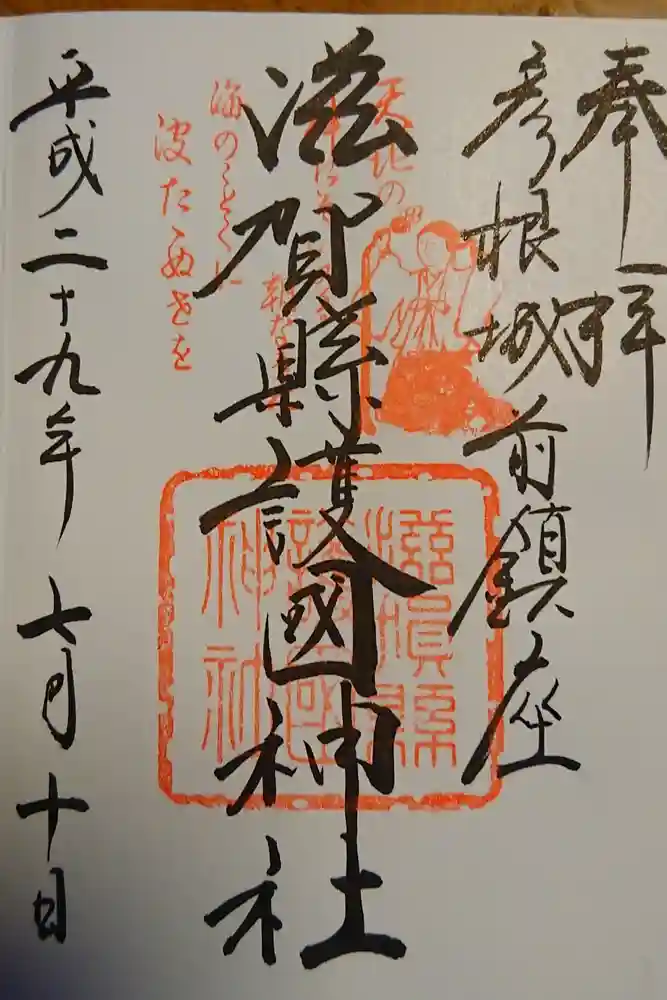 奉拝
彦根城前鎮座
滋賀縣護國神社
平成二十九年七月十日
天地の
海のことくに
波たゝぬ世を
滋賀縣
護國
神社